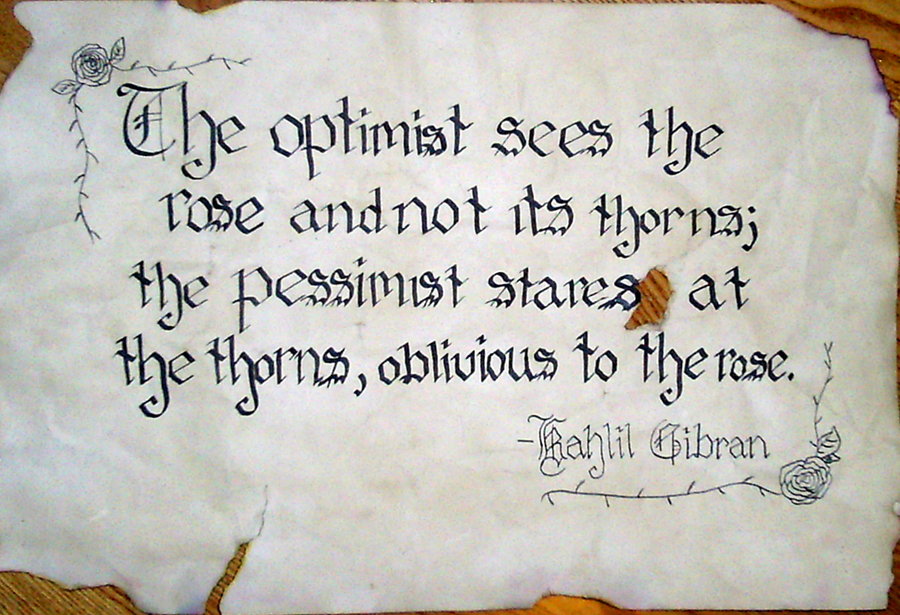 The optimist sees the
rose and not its thorns;
the pessimist stares at
the thorns, oblivious to the rose.
-Kahlil Gibran